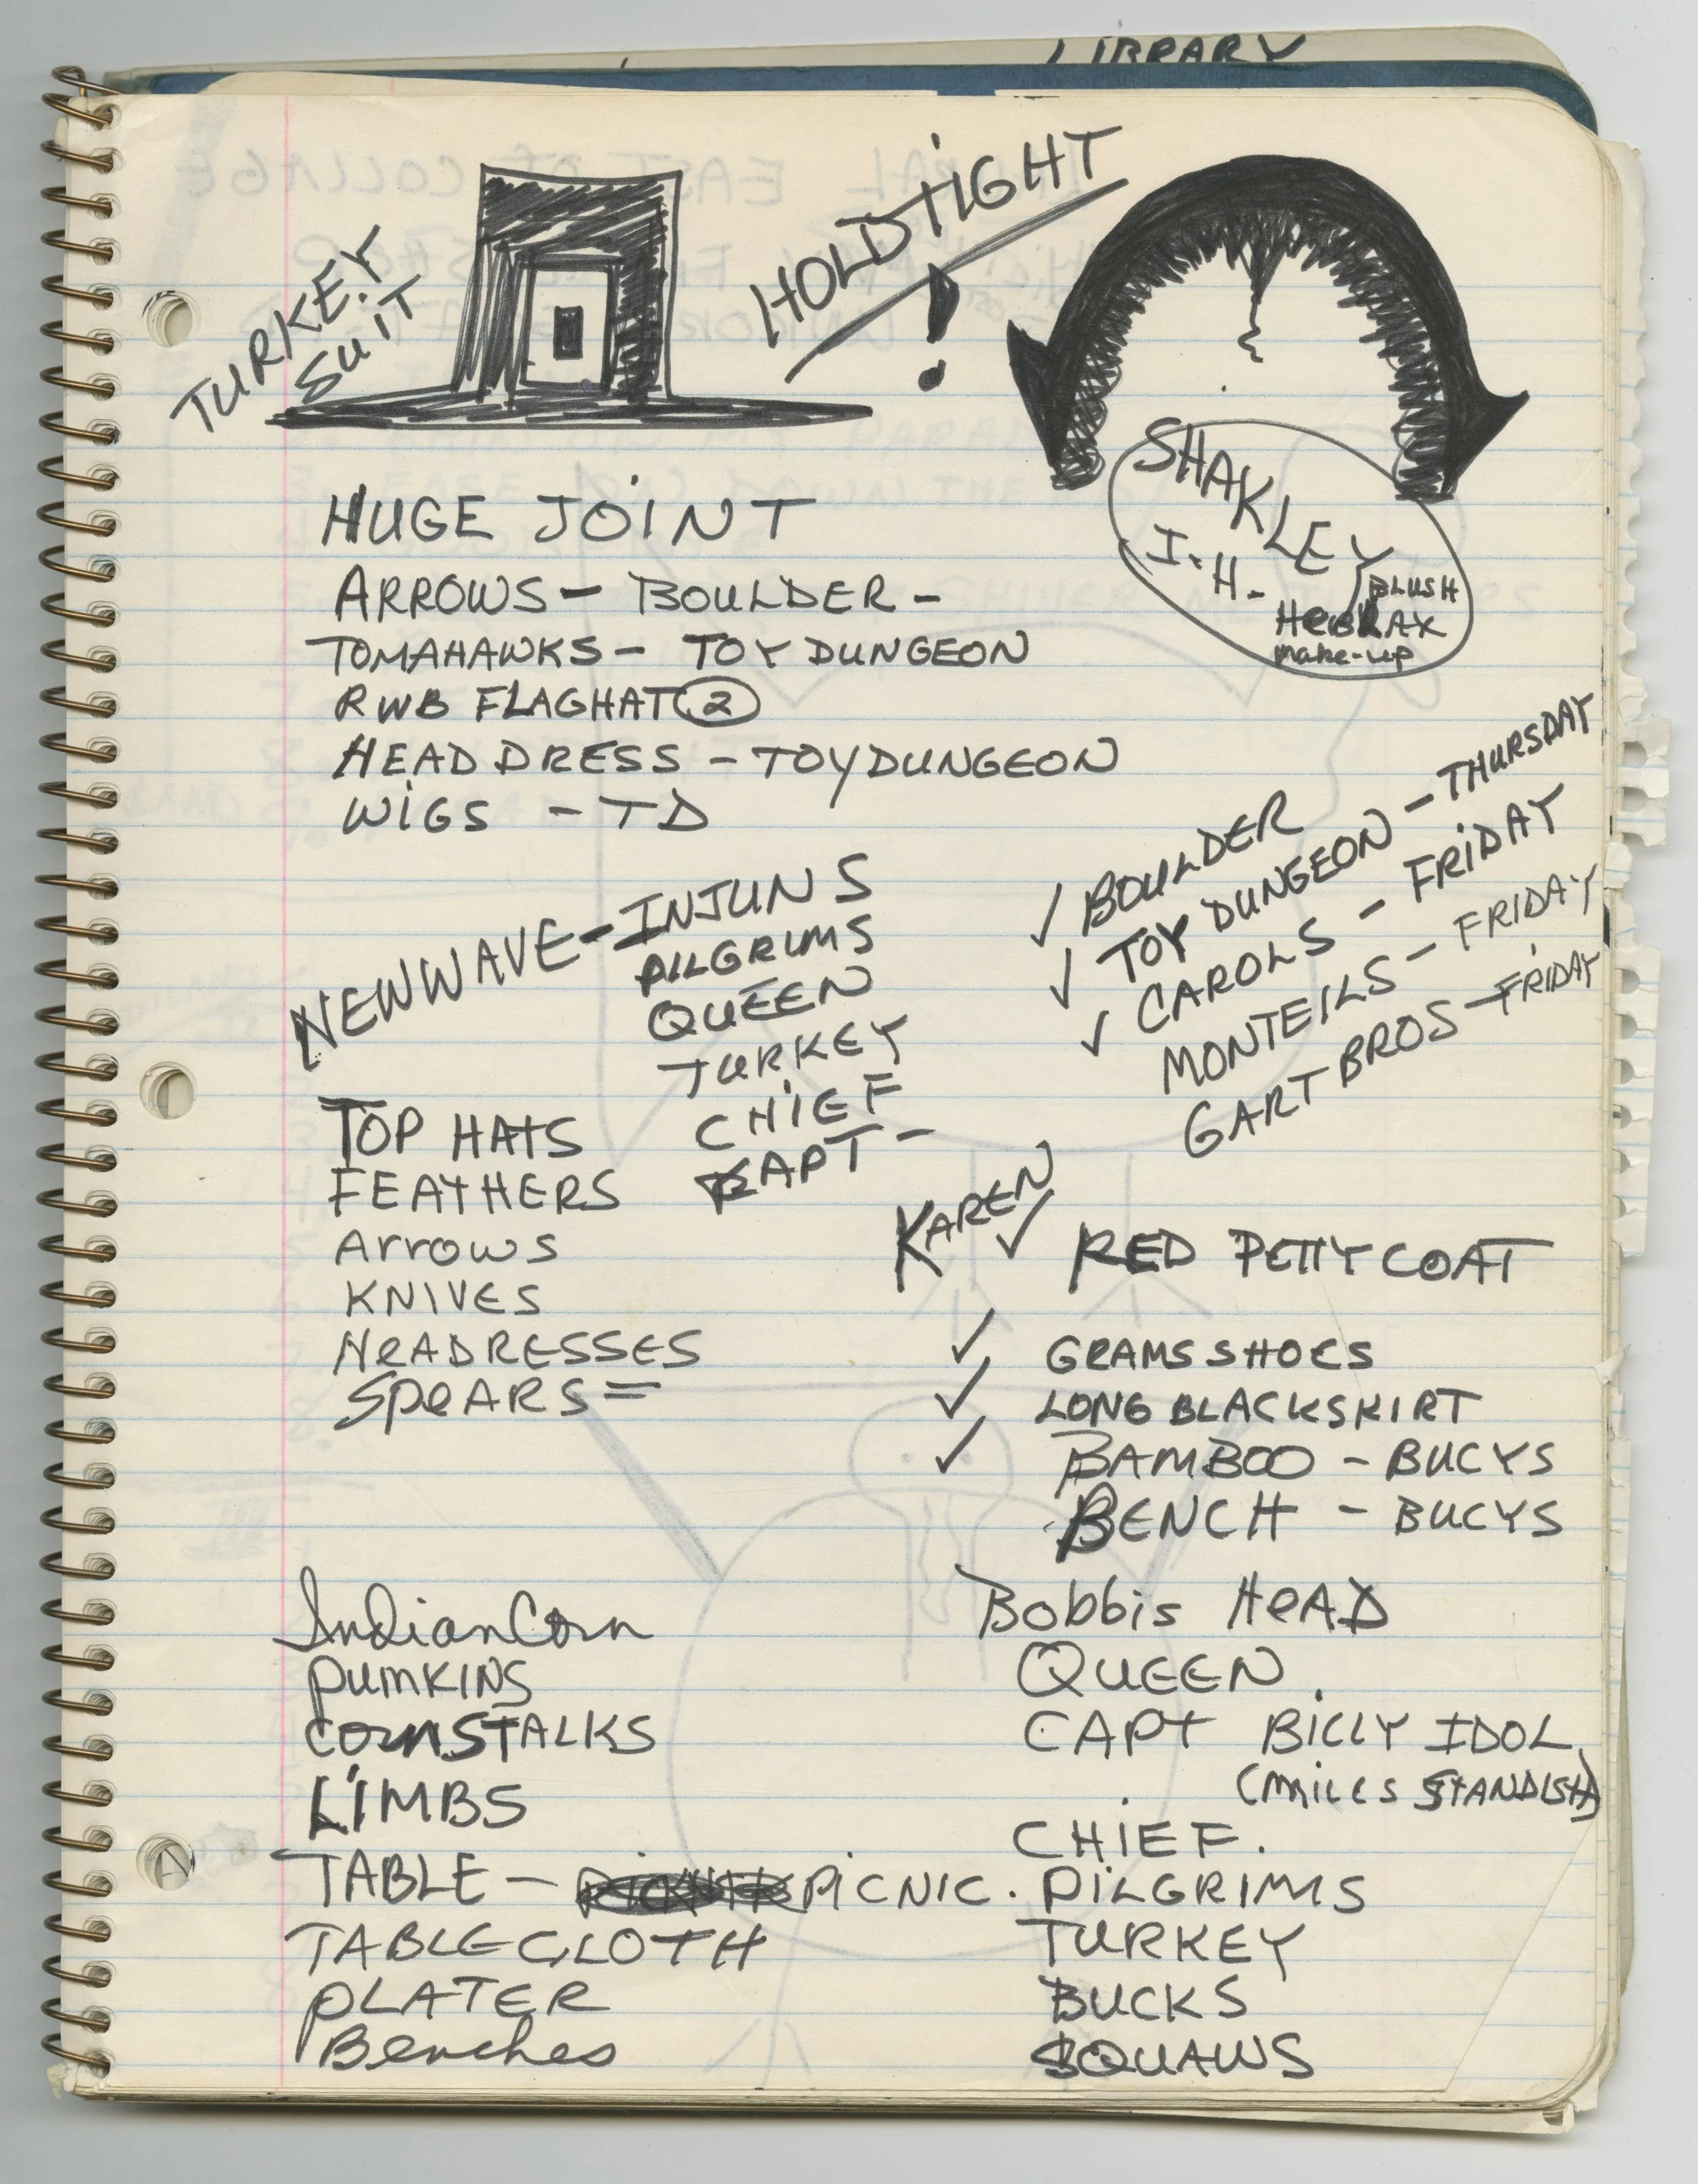 LIBRARY
TURKEY
SUIT
HOLD TIGHT
!
SHAKLEY
I.H.
BLUSH
make-up
HUGE JOINT
ARROWS - BOULDER -
TOMAHAWKS - TOY DUNGEON
RWB FLAGHAT 2
HEAD DRESS - TOYDUNGEON
WIGS - TD
NEWWAVE - INJUNS
PILGRIMS
QUEEN
TURKEY
CHIEF
CAPT -
✓ BOULDER
✓ TOY DUNGEON - THURSDAY
✓ CAROLS - FRIDAY
MONTEILS - FRIDAY
GART BROS - FRIDAY
TOP HATS
FEATHERS
ARROWS
KNIVES
HEADRESSES
SPEARS =
KAREN ✓ RED PETTYCOAT
✓ GRAMS SHOES
✓ LONG BLACK SKIRT
✓ BAMBOO - BUCYS
BENCH - BUCYS
Indian Corn
PUMKINS
CORNSTALKS
LIMBS
TABLE - PICNIC.
TABLECLOTH
PLATER
Benches
Bobbis HEAD
QUEEN
CAPT BILLY IDOL
(MILES STANDISH)
CHIEF.
PILGRIMS
TURKEY
BUCKS
SQUAWS